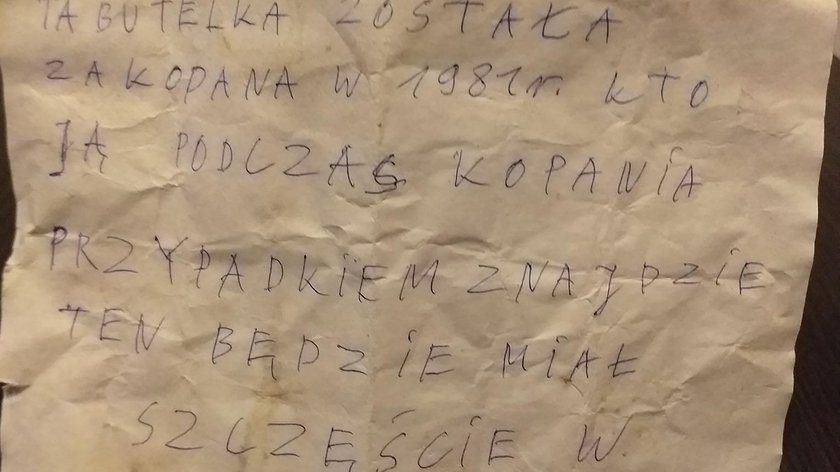 TA BUTELKA ZOSTAŁA
ZAKOPANA W 1981r. KTO
JĄ PODCZAS KOPANIA
PRZYPADKIEM ZNAJDZIE
TEN BĘDZIE MIAŁ
SZCZĘŚCIE W